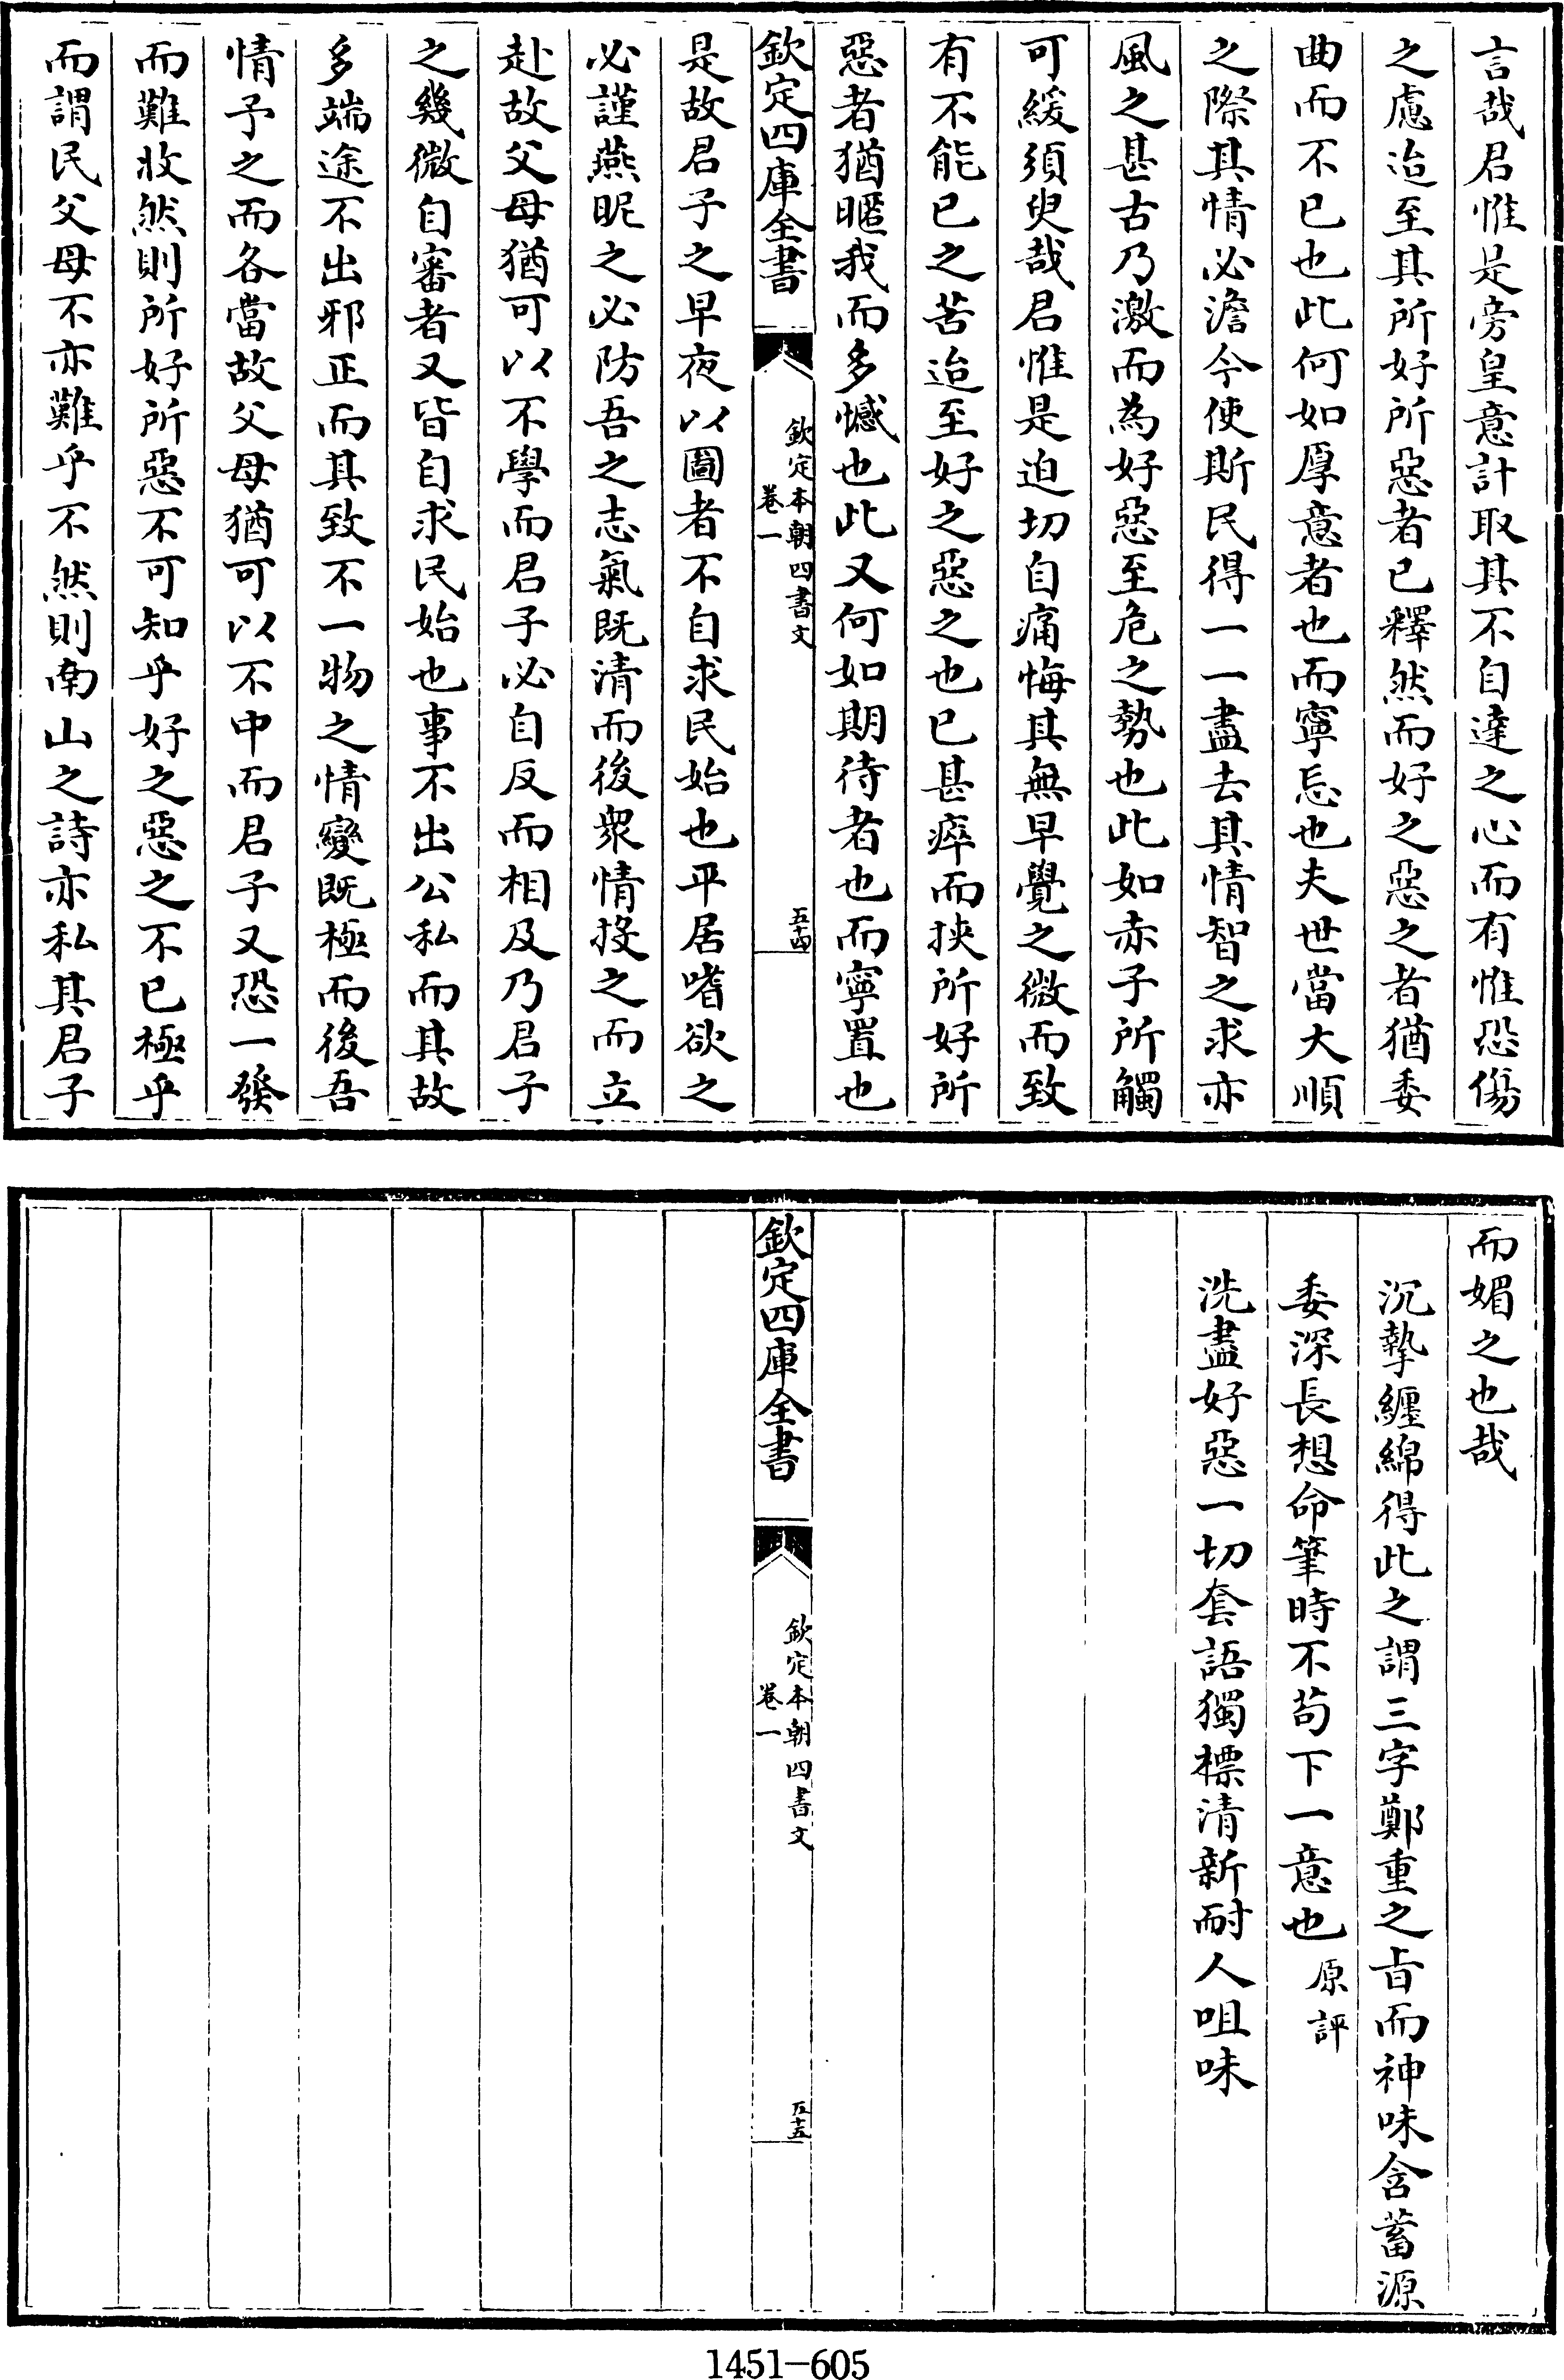 言哉君惟是旁皇意計取其不自達之心而有惟恐傷
之慮迨至其所好所惡者已釋然而好之惡之者猶委
曲而不已也此何如厚意者也而寧忘也夫世當大順
之際其情必澹今使斯民得一一盡去其情智之求亦
風之甚古乃激而為好惡至危之勢也此如赤子所觸
可緩須臾哉君惟是迫切自痛悔其無早覺之微而致
有不能已之苦迨至好之惡之也已甚瘁而挾所好所
惡者猶暱我而多憾也此又何如期待者也而寧置也
欽定四庫全書
欽定本朝四書文
卷一
五十四
是故君子之早夜以圖者不自求民始也平居嗜欲之
必謹燕昵之必防吾之志氣既清而後衆情投之而立
赴故父母猶可以不學而君子必自反而相及乃君子
之幾微自審者又皆自求民始也事不出公私而其故
多端途不出邪正而其致不一物之情變既極而後吾
情予之而各當故父母猶可以不中而君子又恐一發
而難收然則所好所惡不可知乎好之惡之不已極乎
而謂民父母不亦難乎不然則南山之詩亦私其君子
而媚之也哉
沉摯纏綿得此之謂三字鄭重之旨而神味含蓄源
委深長想命筆時不苟下一意也原評
洗盡好惡一切套語獨標清新耐人咀味
欽定四庫全書
欽定本朝四書文
卷一
五十五
1451-605